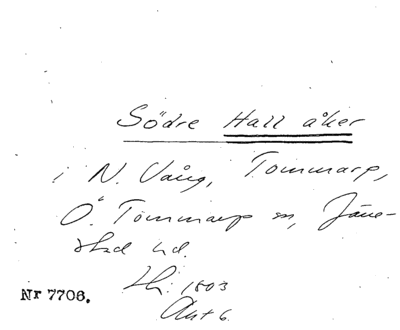 Södre Hall åker
i N. Vång, Tommarp,
Ö. Tommarp sn, Järre-
stad hd.
Lh: 1803
Akt 6
Nr 7706.